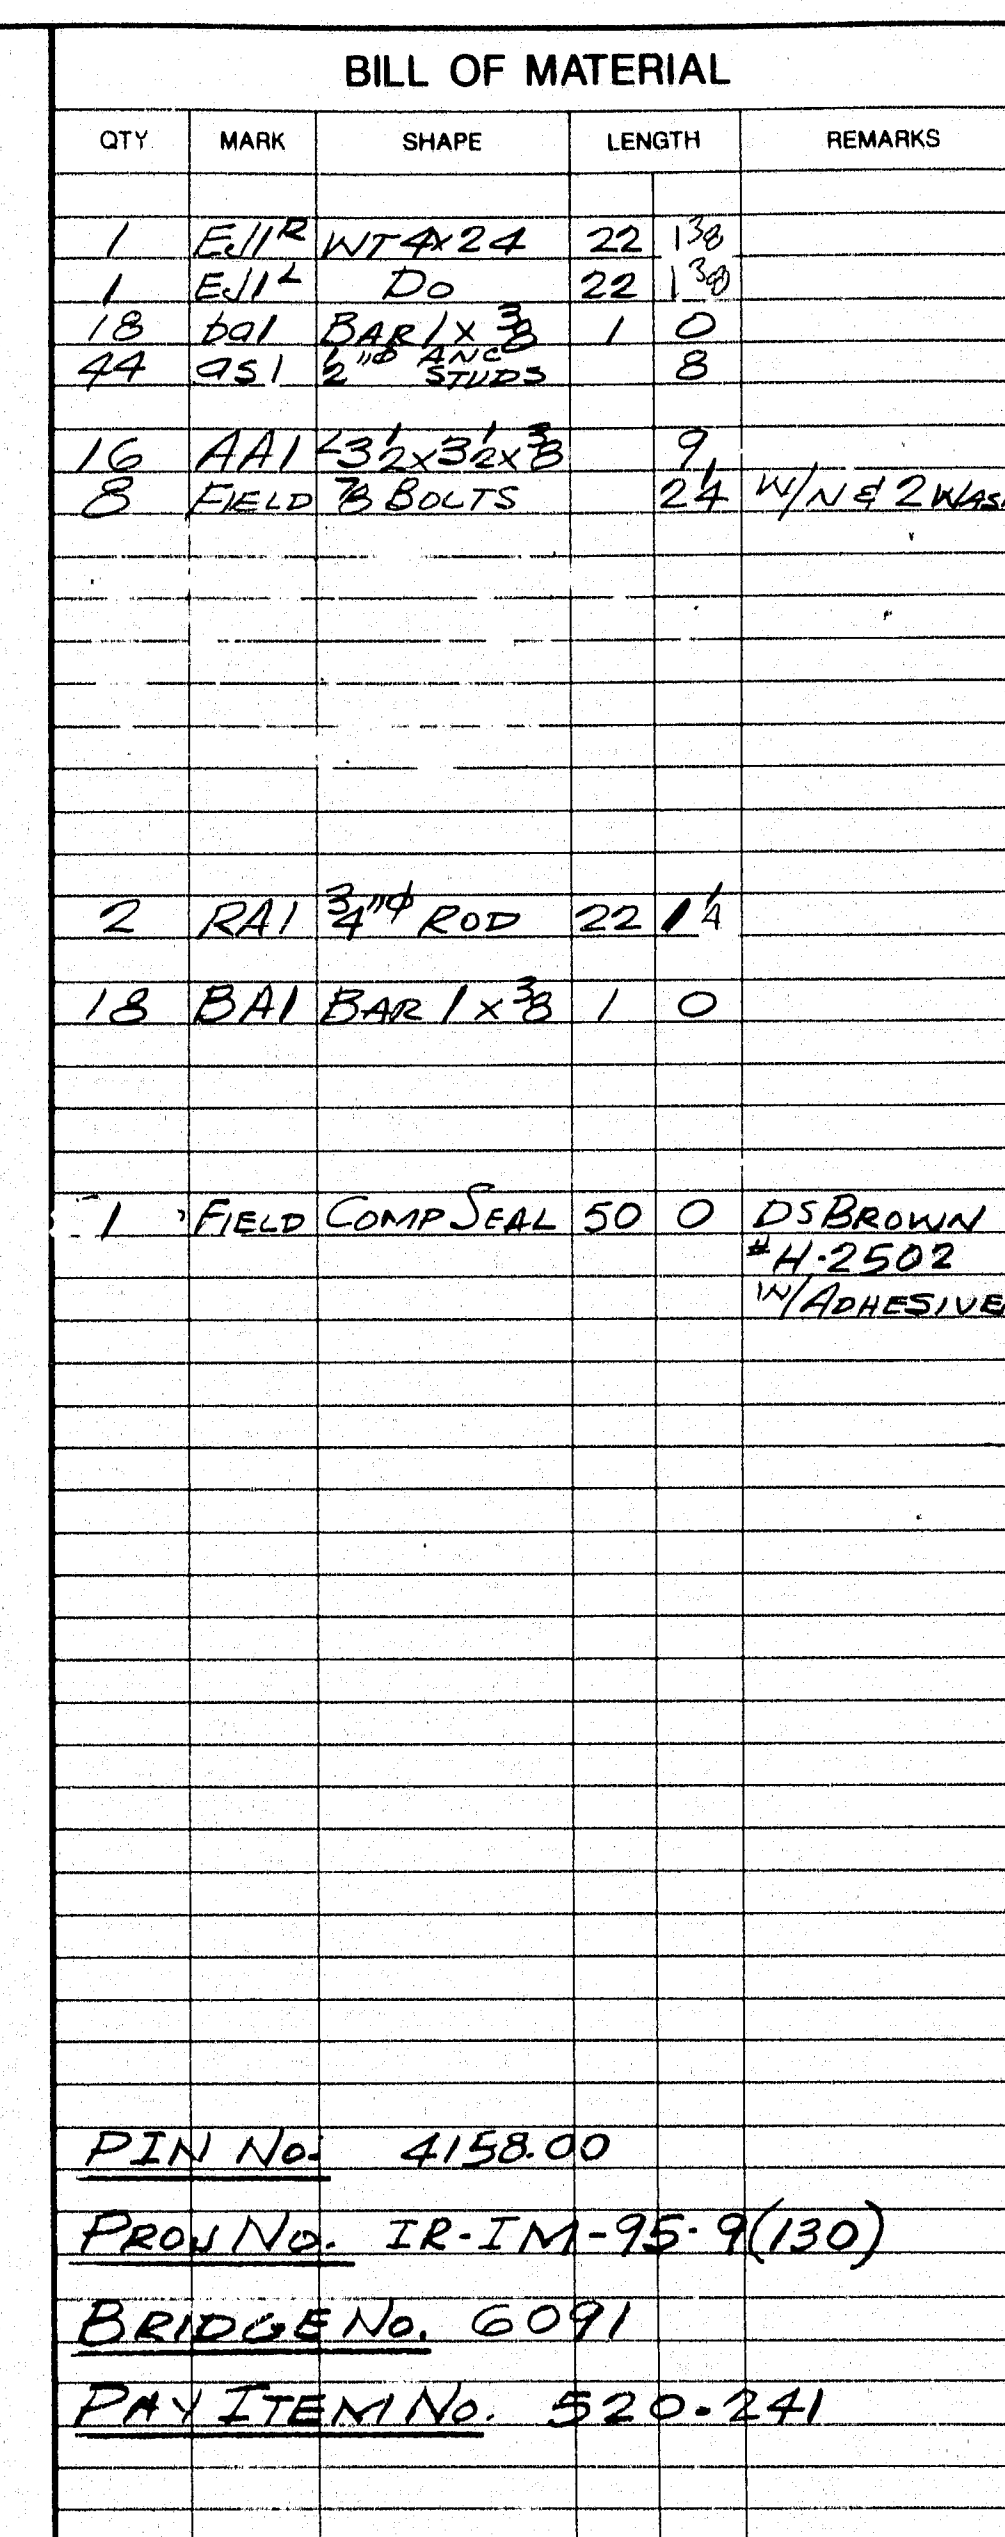 BILL OF MATERIAL
QTY MARK SHAPE LENGTH REMARKS
1 EJ1R WT4x24 22 1 3/8
1 EJ1L DO 22 1 3/8
18 ba1 BAR 1 x 3/8 1 0
44 as1 1/2"ø ANC STUDS 8
16 AA1 L3 1/2 x 3 1/2 x 3/8 9
8 FIELD 7/8 BOLTS 2 1/4 W/N & 2 WAS
2 RA1 3/4"ø ROD 22 1 1/4
18 BA1 BAR 1 x 3/8 1 0
1 FIELD COMP SEAL 50 0 DS BROWN
#H-2502
W/ADHESIVE
PIN No. 4158.00
PROJ No. IR-IM-95-9(130)
BRIDGE No. 6091
PAY ITEM No. 520.241